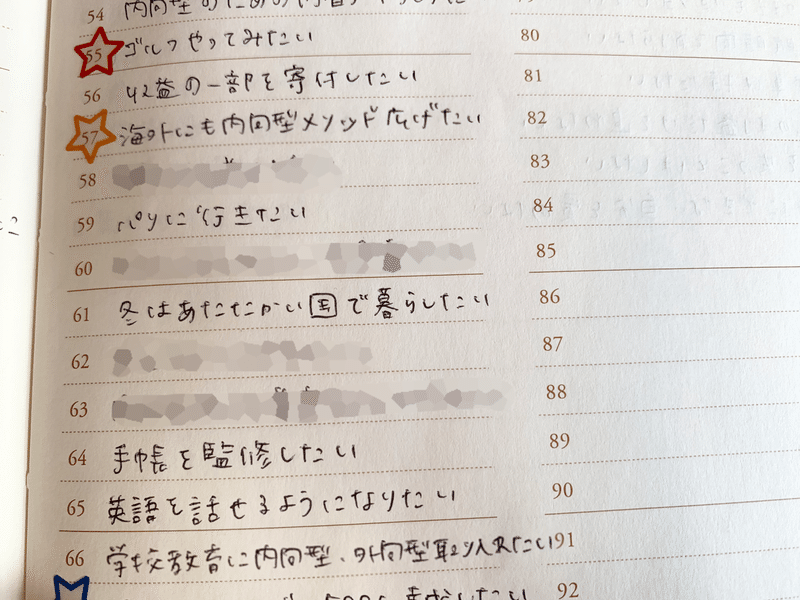 54 内向型のための
55 ゴルフやってみたい
56 収益の一部を寄付したい
57 海外にも内向型メソッド広げたい
58
59 パリに行きたい
60
61 冬はあたたかい国で暮らしたい
62
63
64 手帳を監修したい
65 英語を話せるようになりたい
66 学校教育に内向型、外向型取り入れたい
したい
80
81
82
83
84
85
86
87
88
89
90
91
92